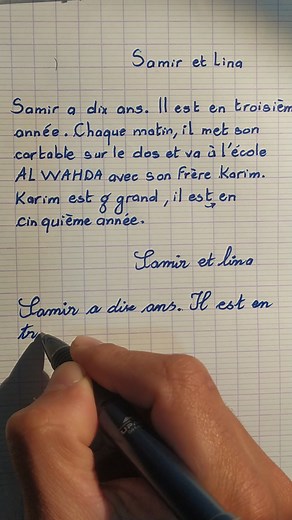 Samir et Lina
Samir a dix ans. Il est en troisièm
année. Chaque matin, il met son
cartable sur le dos et va à l'école
AL WAHDA avec son Frère Karim.
Karim est grand, il est en
cinquième année.
Samir et lina
Samir a dix ans. Il est en
tr